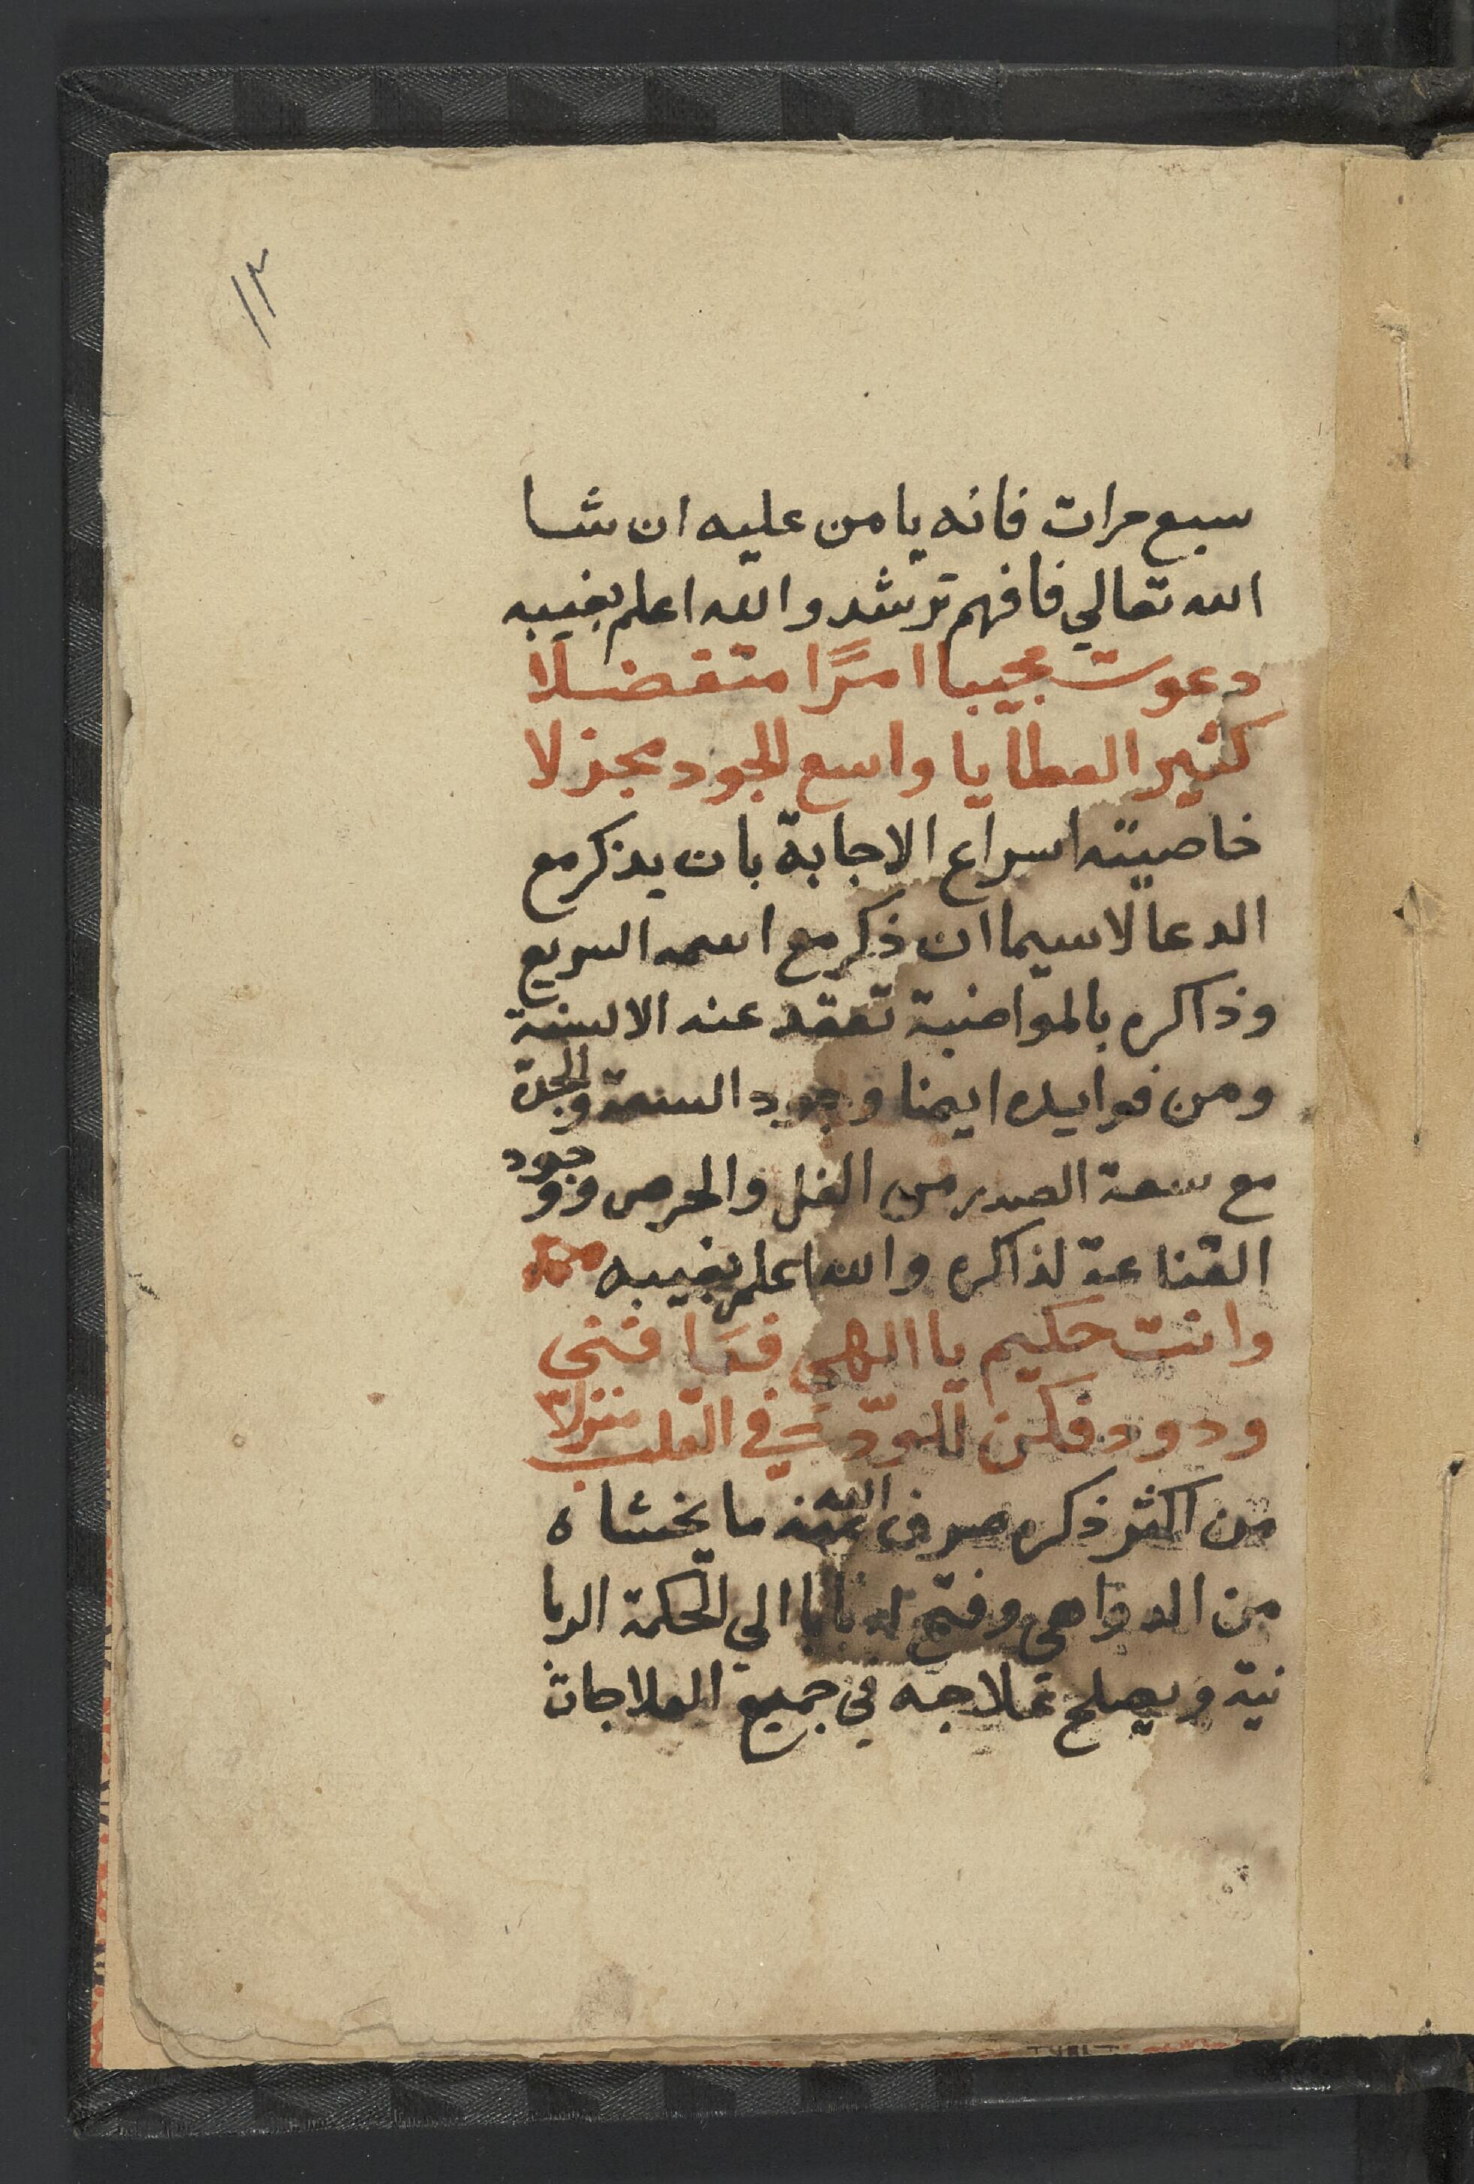 ١٢
سبع مرات فانه يامن عليه ان شا
الله تعالي فافهم ترشد والله اعلم بغيبه
دعوت مجيبا امرًا متفضلا
كثير العطايا واسع الجود مجزلا
خاصيته اسراع الاجابة بان يذكر مع
الدعا لاسيما ان ذكر مع اسمه السريع
وذاكره بالمواضبة تعقد عنه الالسنة
ومن فوايده ايضا وجود السعة والجدة
مع سعة الصدر من الغل والحرص ووجود
القناعة لذاكره والله اعلم بغيبه
وانت حكيم يا الهي فعافني
ودود فكن للودّ في القلب منزلا
من اكثر ذكره صرف الله عنه ما يخشاه
من الدواهي وفتح له بابا الي الحكمة الربا
نية ويصلح علاجه في جميع العلاجات